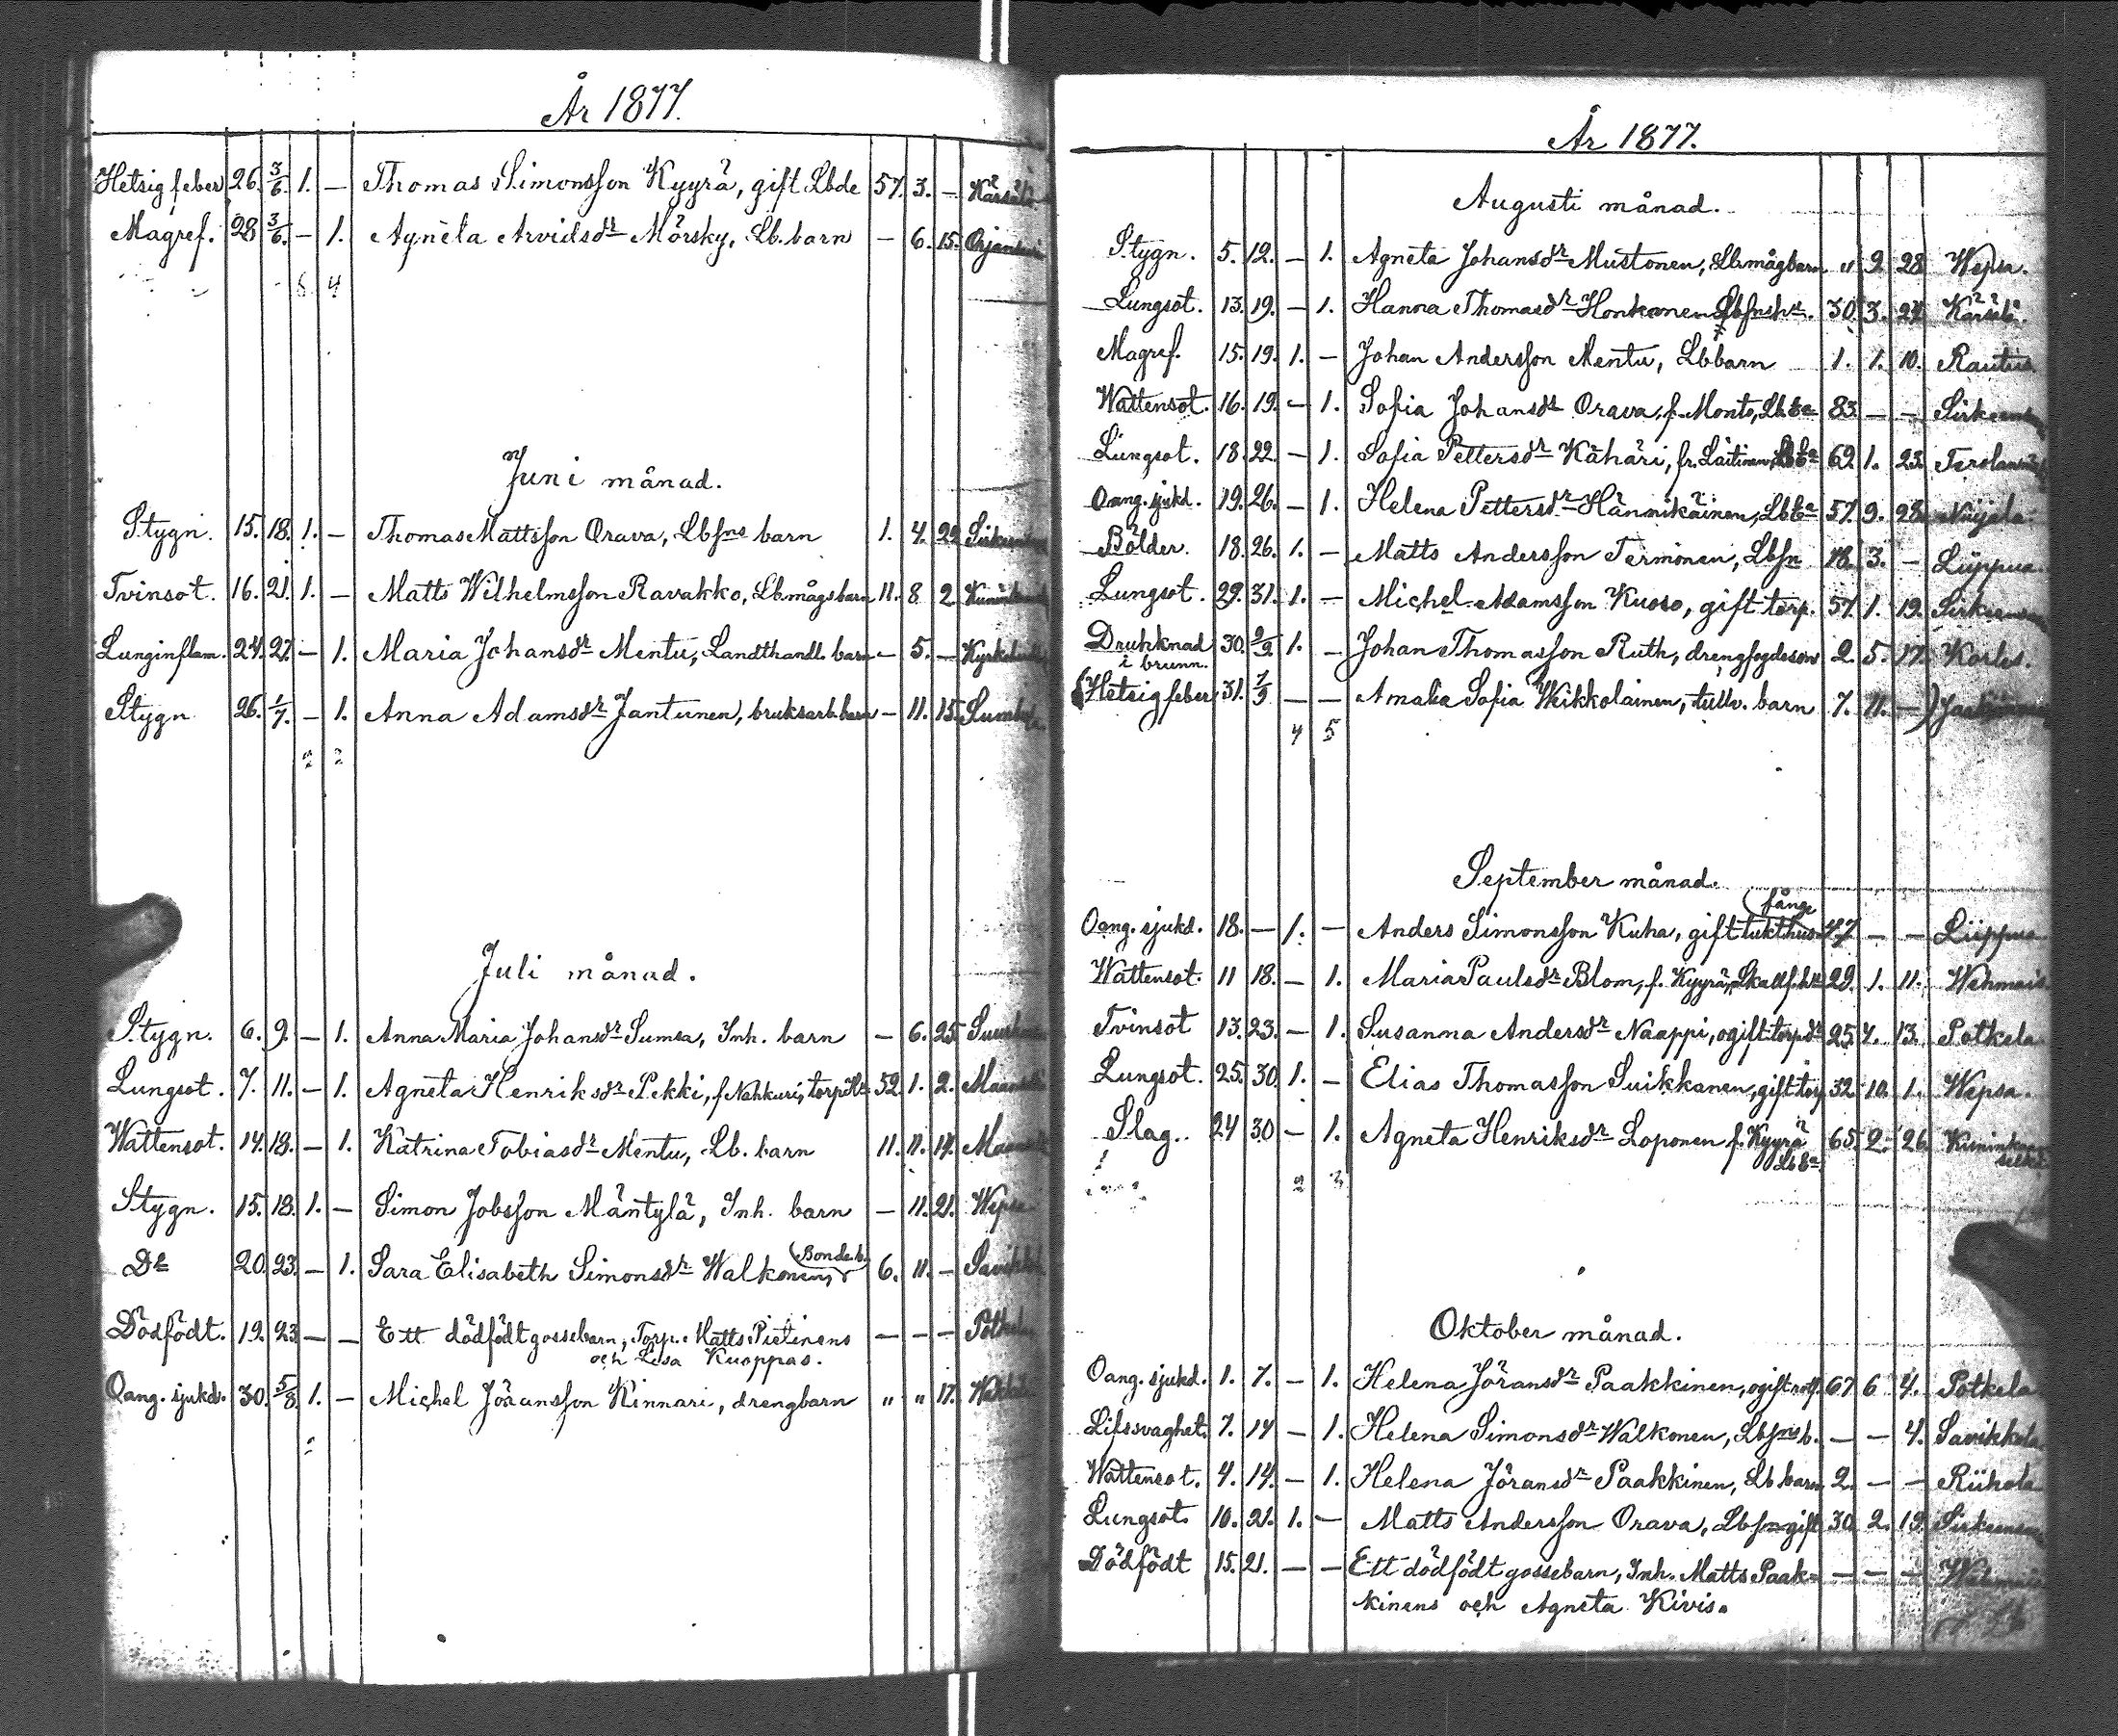 År 1877.
Hetsig feber 26. 3/6. 1. — Thomas Simonsson Kyyrä, gift Lbde 57. 3. — Kärsälä
Magref. 28 3/6. — 1. Agneta Arvidsdr Mörsky, Lb. barn — 6. 15.
Juni månad.
Stygn. 15. 18. 1. — Thomas Mattsson Orava, Lbsns barn 1. 4. 22
Tvinsot. 16. 21. 1. — Matts Wilhelmsson Ravakko, Lb.mågsbarn 11. 8 2
Lunginflam. 24. 27. — 1. Maria Johansdr Mentu, Landthandl. barn — 5. —
Stygn 26. 1/7. — 1. Anna Adamsdr Jantunen, bruksarb. barn — 11. 15.
2 2
Juli månad.
Stygn. 6. 9. — 1. Anna Maria Johansdr Sumsa, Inh. barn — 6. 25
Lungsot. 7. 11. — 1. Agneta Henriksdr Pekki, f Nahkuri, 52. 1. 2.
Wattensot. 14. 18. — 1. Katrina Tobiasdr Mentu, Lb. barn 11. 11. 14.
Stygn. 15. 18. 1. — Simon Jobsson Mäntylä, Inh. barn — 11. 21. Wepsa
Do 20. 23. — 1. Sara Elisabeth Simonsdr Walkonen, (Bonde b. 6. 11. —
Dödfödt. 19. 23 — — Ett dödfödt gossebarn, Torp. Matts Pietinens — — —
och Lisa Kuoppas.
Oang. sjukd. 30. 5/8 1. — Michel Jöransson Kinnari, drengbarn " " 17.
År 1877.
Augusti månad.
Stygn. 5. 12. — 1. Agneta Johansdr Mustonen, Lb.mågbarn " 9. 28 Wepsa.
Lungsot. 13. 19. — 1. Hanna Thomasdr Honkanen 30. 3. 27 Kärsälä.
Magref. 15. 19. 1. — Johan Andersson Mentu, Lbbarn 1. 1. 10. Rautus
Wattensot. 16. 19. — 1. Sofia Johansdr Orava, f. Monto, Lb.Ea 83. — —
Lungsot. 18. 22. — 1. Sofia Pettersdr Kähäri, fr. Laitinen, 62 1. 23.
Oang. sjukd. 19. 26. — 1. Helena Pettersdr Hännikäinen, LbEa 57. 9. 28.
Bölder. 18. 26. 1. — Matts Andersson Termonen, Lbsn 18. 3. — Liippua.
Lungsot. 29. 31. 1. — Michel Adamsson Kuoso, gift torp. 57. 1. 19.
Druhknad 30. 2/9 1. — Johan Thomasson Ruth, drengfogdeson 2. 5. 17.
i brunn.
(Hetsig feber 31. 7/9 — — Amalia Sofia Weikkolainen, tullv. barn 7. 11. —)
4 5
September månad.
Oang. sjukd. 18. — 1. — Anders Simonsson Kuha, gift tukthus (fånge 47 — — Liippua
Wattensot. 11 18. — 1. Maria Paulsdr Blom, f. Kyyrä, 29. 1. 11.
Tvinsot 13. 23. — 1. Susanna Andersdr Naappi, ogift torpdr 25 7. 13. Potkela
Lungsot. 25. 30. 1. — Elias Thomasson Suikkanen, gift torp 32. 10. 1. Wepsa.
Slag. 24 30 — 1. Agneta Henriksdr Loponen f. Kyyrä 65. 2. 26.
LbEa
2 3
Oktober månad.
Oang. sjukd. 1. 7. — 1. Helena Jöransdr Paakkinen, ogift 67 6 4. Potkela
Lifssvaghet. 7. 14 — 1. Helena Simonsdr Walkonen, Lbsns b. — — 4. Savikkola
Wattensot. 4. 14. — 1. Helena Jöransdr Paakkinen, Lb barn 2. — — Riihola
Lungsot. 10. 21. 1. — Matts Andersson Orava, Lbsn gift 30 2. 19.
Dödfödt 15. 21. — — Ett dödfödt gossebarn, Inh. Matts Paak- — — —
kinens och Agneta Kivis.